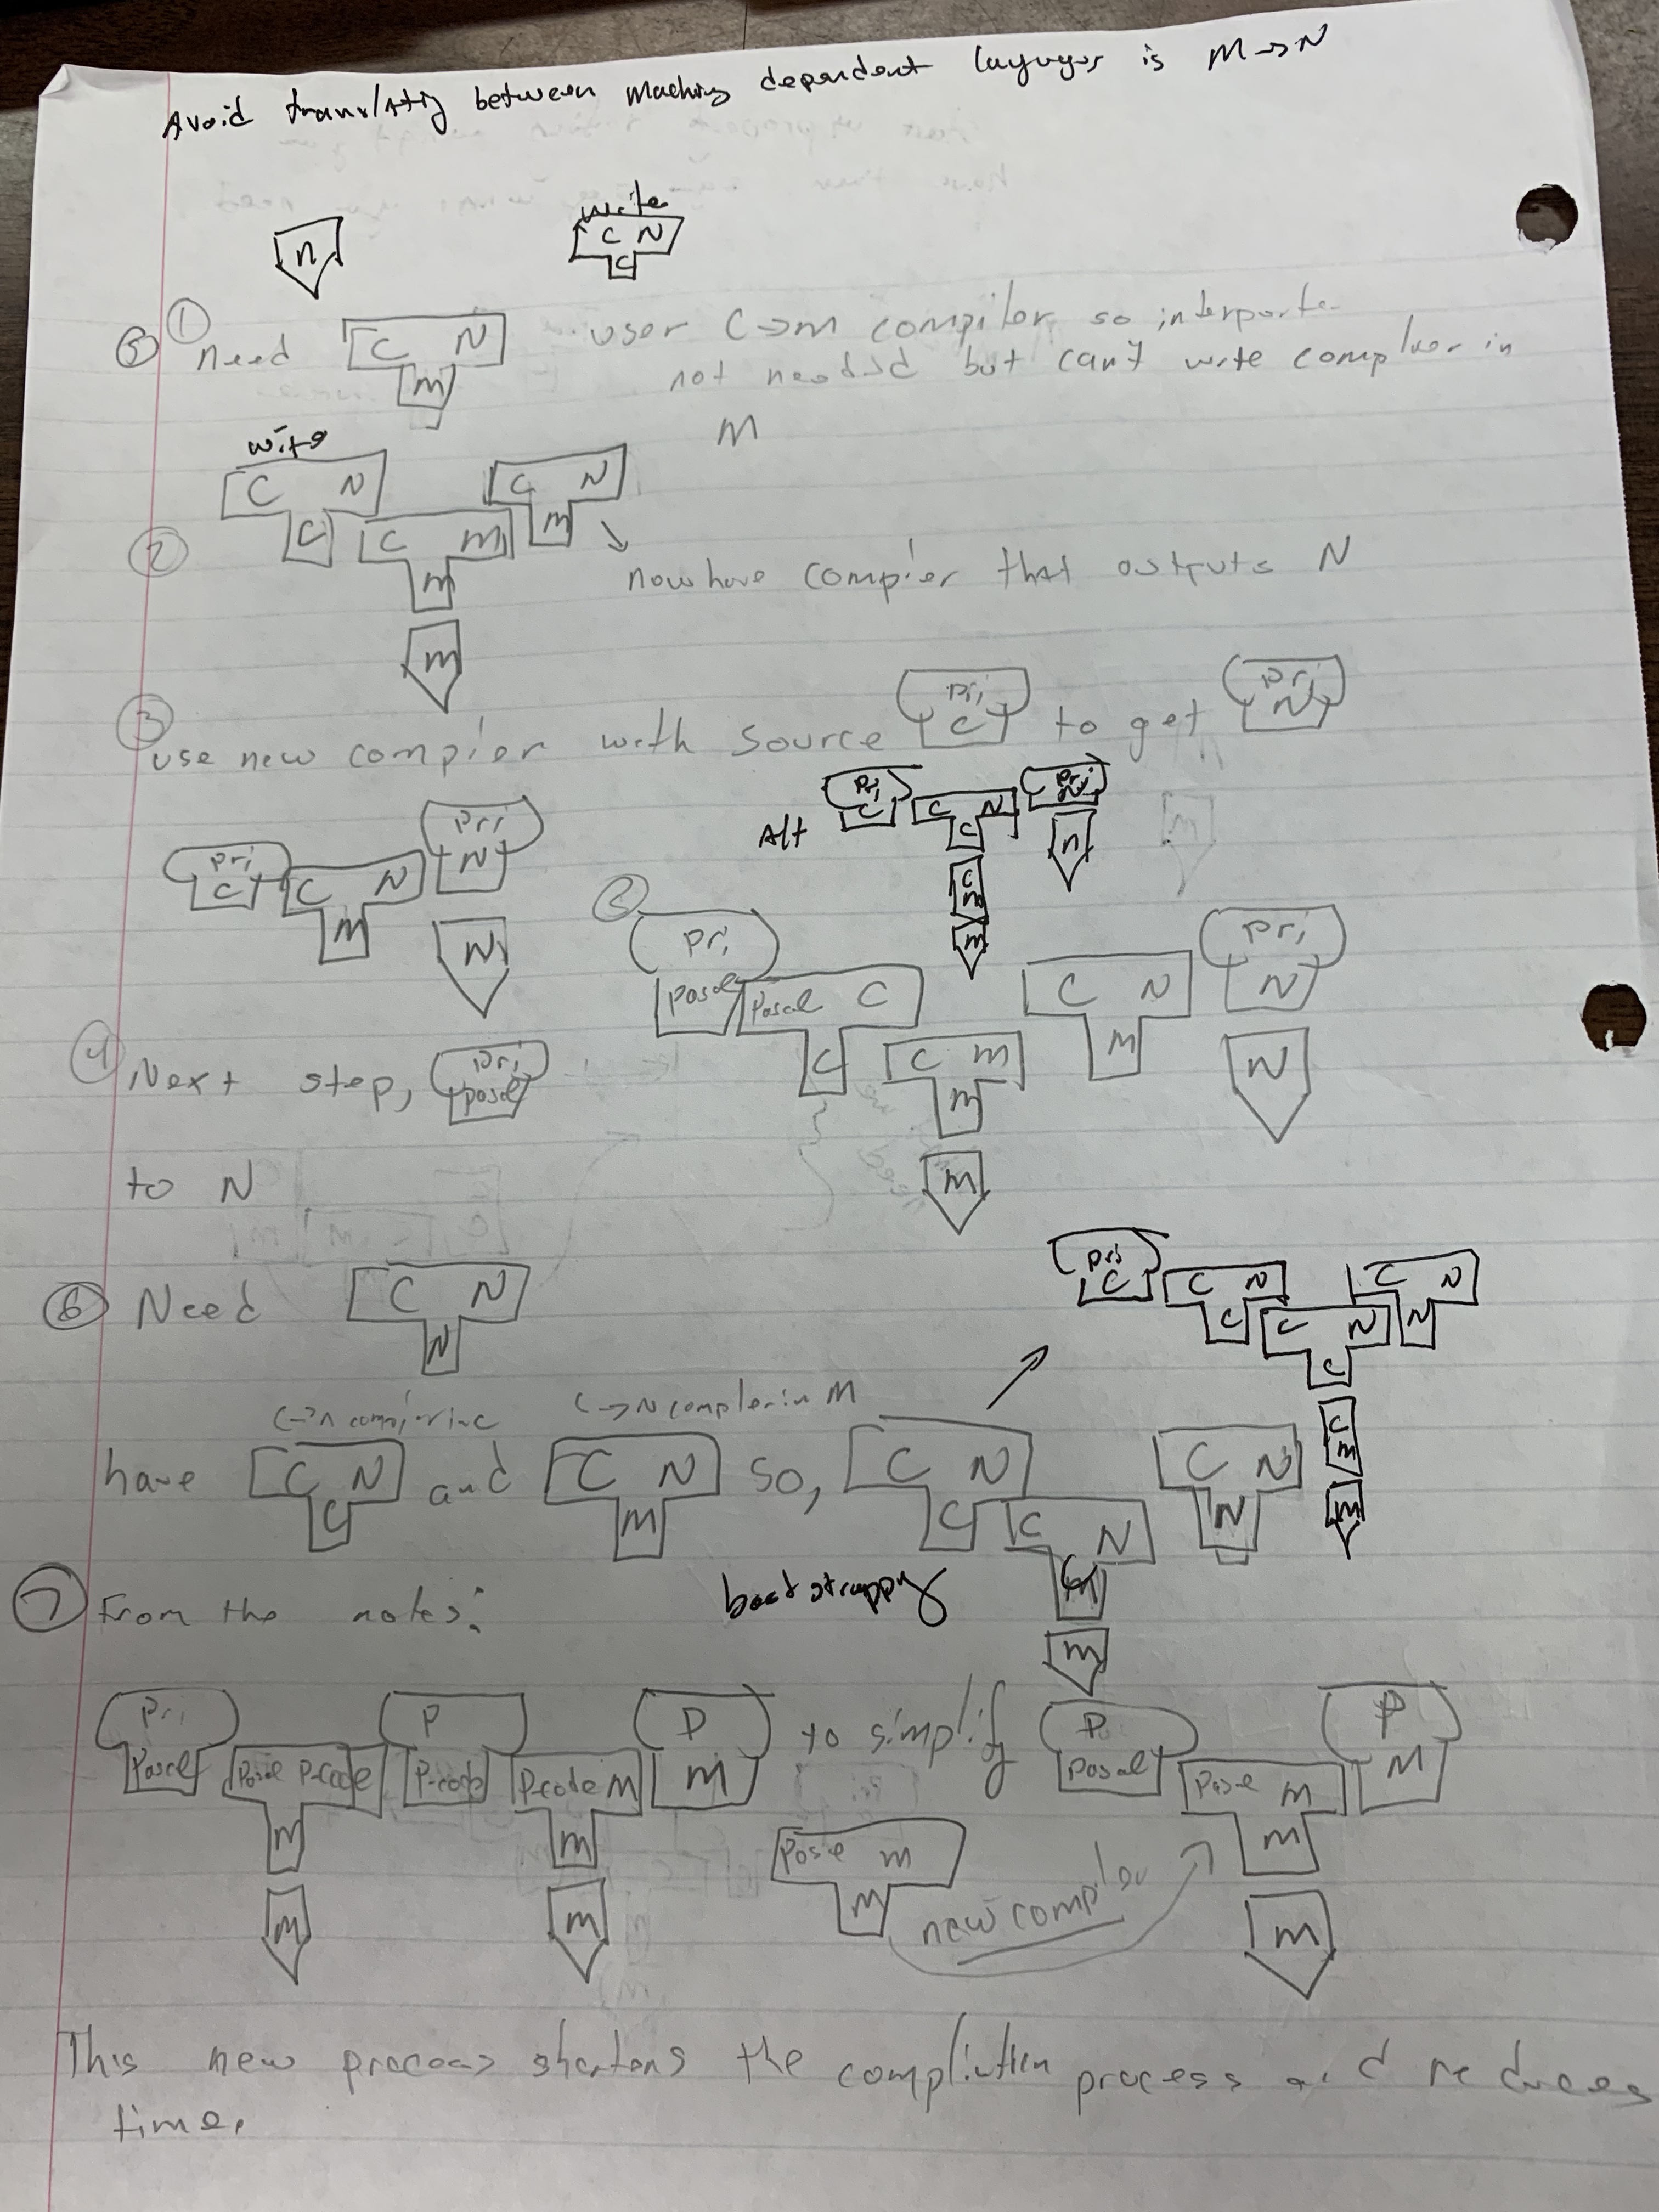 Avoid translatig between maching dependent laguages is M→N
n
write
C N
C
⑤ ① need C N
M
user C→m compiler so interporte
not needed but can't write compluer in
M
write
C N
C
② C m
m
m
C N
m
now have compier that outputs N
③ use new compier with source Pri C to get Pri N
Pri C
C N
M
Pri N
N
Alt
Pri C
C N
C
C m
m
Pri N
n
④ Next step, Pri pascal
to N
Pri
Pascal
Pascal C
C
C m
m
m
C N
m
Pri
N
N
⑥ Need C N
N
Pri C
C N
C
C N
C
C N
N
C m
m
C→N compier in C
C→N compler in M
have C N C and C N M so, C N
C
C N
m
C N
N
bootstrappng
⑦ From the notes:
Pri
Pascal
Pascal P-code
m
m
P
P-code
P-code M
m
m
P
m
to simplify
P
Pascal
Pascal m
m
m
P
M
Pascal m
m
new compiler
This new process shortens the compliation process and reduces
time.